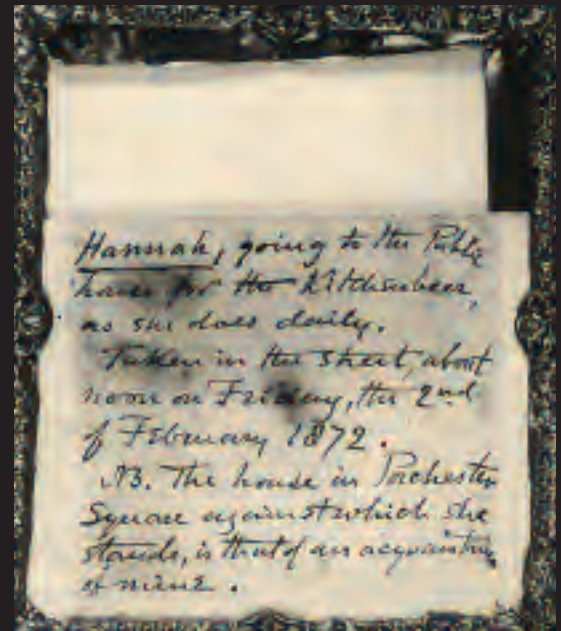 Hannah, going to the Public
house for the Kitchenbeer,
as she does daily.
Taken in the street, about
noon on Friday, the 2nd
of February 1872.
NB. The house in Porchester
Square against which she
stands, is that of an acquaintance
of mine.